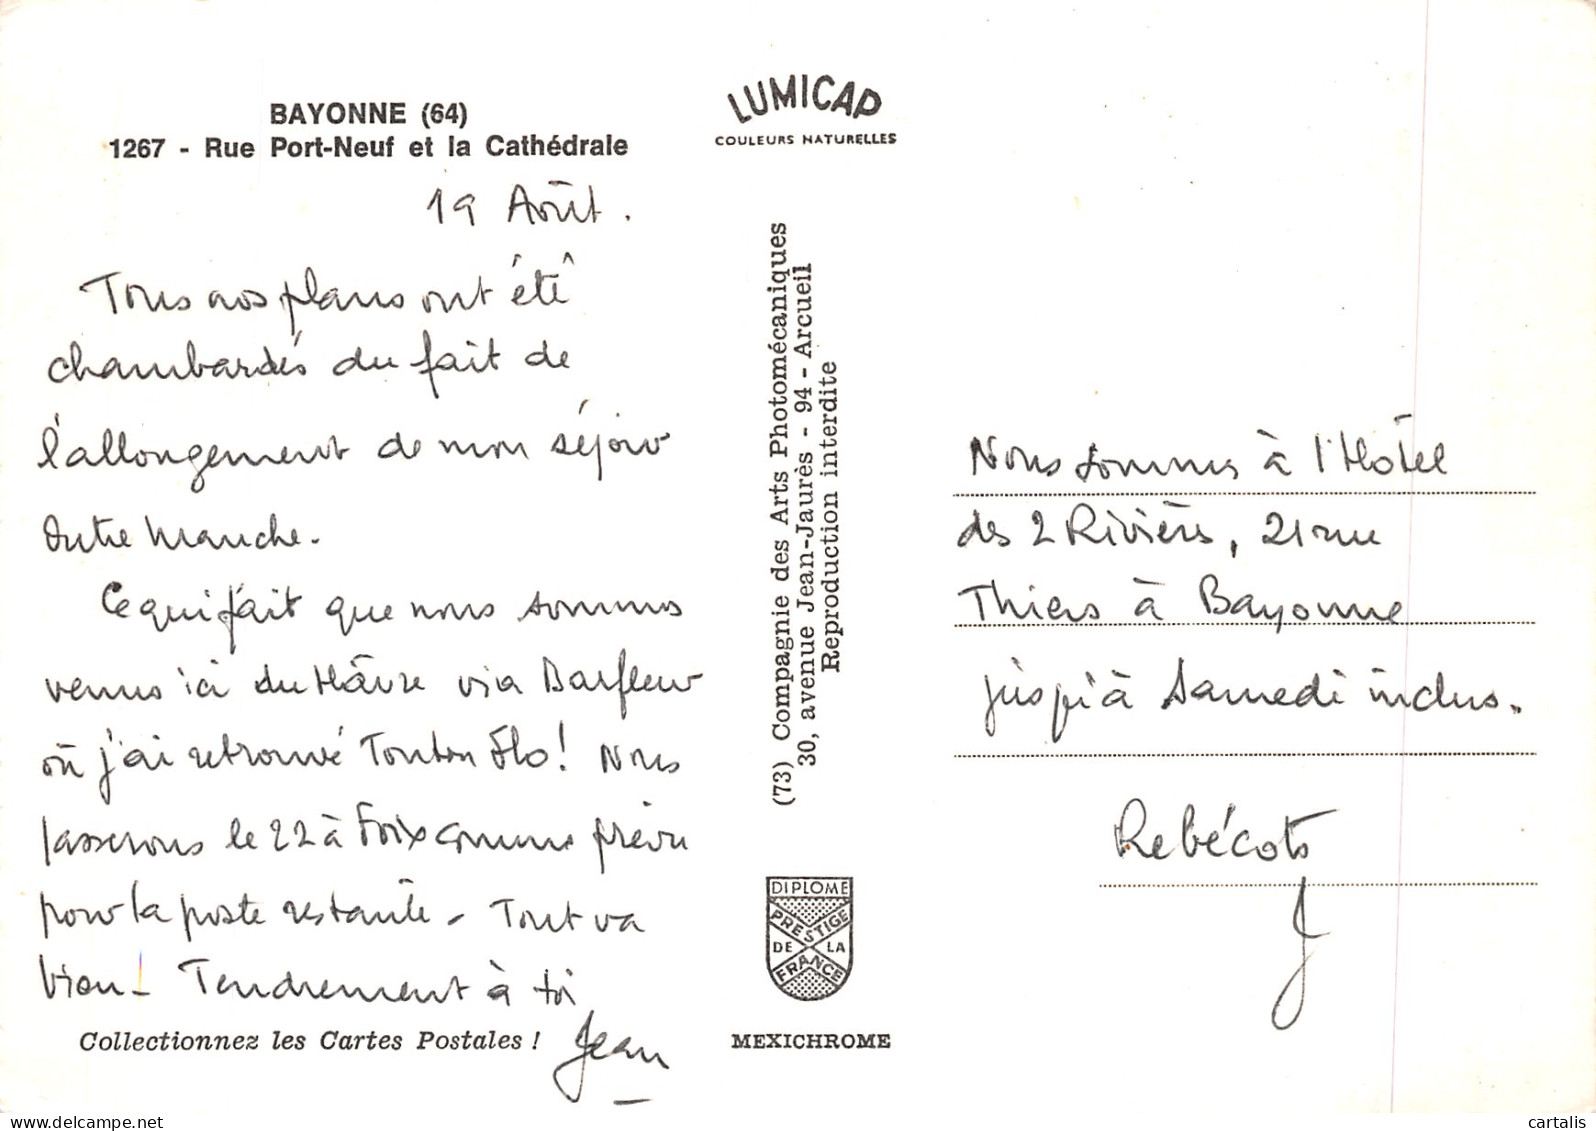 BAYONNE (64)
1267 - Rue Port-Neuf et la Cathédrale
19 Août.
Tous nos plans ont été
chambardés du fait de
l'allongement de mon séjour
Outre Manche.
Ce qui fait que nous sommes
venus ici du Hâvre via Barfleur
où j'ai retrouvé Tonton Flo! Nous
passerons le 22 à Foix comme prévu
pour la poste restante - Tout va
bien - Tendrement à toi
Jean
Collectionnez les Cartes Postales !
LUMICAP
COULEURS NATURELLES
(73) Compagnie des Arts Photomécaniques
30, avenue Jean-Jaurès - 94 - Arcueil
Reproduction interdite
DIPLOME
PRESTIGE
DE LA
FRANCE
MEXICHROME
Nous sommes à l'Hôtel
des 2 Rivières, 21 rue
Thiers à Bayonne
jusqu'à Samedi inclus.
Rebécots
J
cartalis
www.delcampe.net